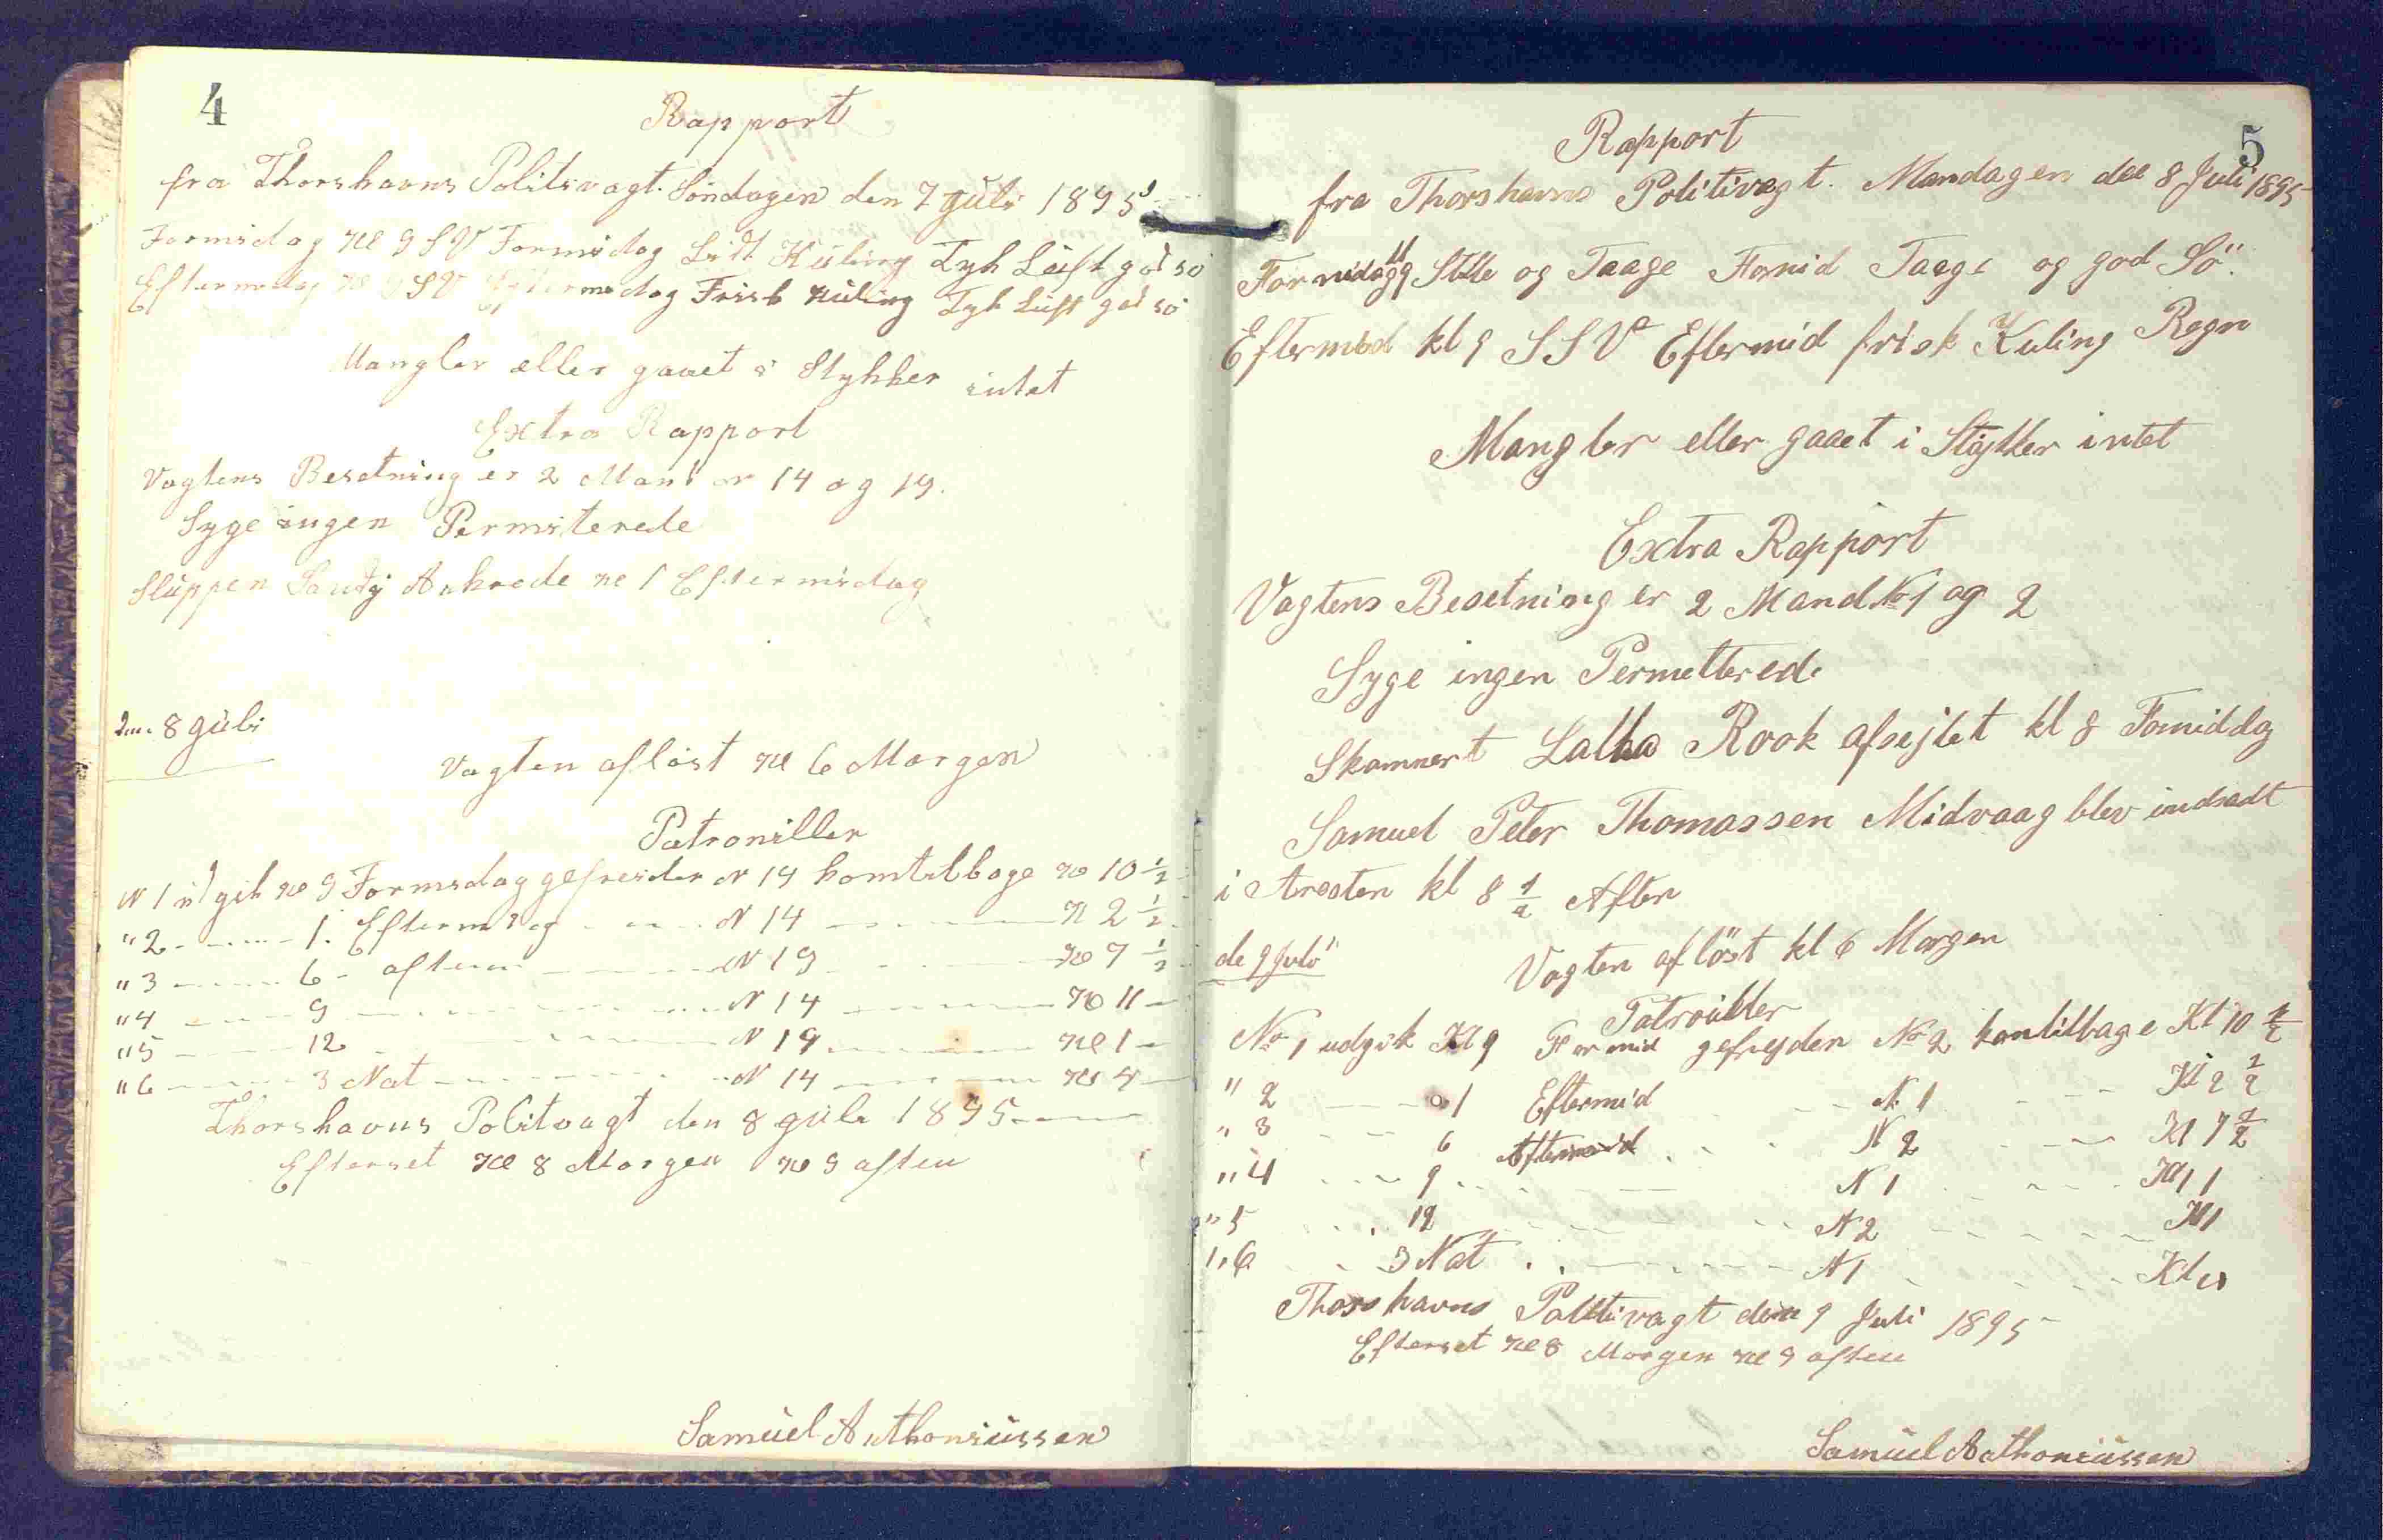 4
Rapport
fra Thorshavns Politivagt. Søndagen den 7 Juli 1895
Formidag Kl 9 S V Formidag Lidt Küling Tyk Lüft god sö
Eftermedag Kl 9 S V Eftermedag Frisk Küling Tyk Lüft god sö
Mangler eller gaaet i Stykker intet
Extra Rapport
Vagtens Besetning er 2 Mand nr 14 og 19.
Syge ingen Permiterede
Slüppen Ankrede Kl 1 Eftermidag
Den 8 Jüli
Vagten aflöst Kl 6 Morgen
Patroniller
N 1 üdgik Kl 9 Formidag gefreider N 14 komtilbage Kl 10 1/2
" 2 - - - 1. Eftermidag - - - N 14 - - - Kl 2 1/2
" 3 - - - 6 - aften - - - N 19 - - - Kl 7 1/2
" 4 - - - 9 - - - N 14 - - - Kl 11 -
" 5 - - - 12 - - - N 19 - - - Kl 1 -
" 6 - - - 3 Nat - - - N 14 - - - Kl 4 -
Thorshavns Politvagt den 8 Jüli 1895
Efterset Kl 8 Morgen Kl 9 aften
Samüel Anthoniüssen
5
Rapport
fra Thorshavns Politivagt. Mandagen den 8 Juli 1895
Formidag Kl 9 Stille og Taage Formid Taage og god Sö
Eftermid kl 9 S S V Eftermid frisk Kuling Regn
Mangler eller gaaet i Stÿkker intet
Extra Rapport
Vagtens Besetning er 2 Mand No 1 og 2
Syge ingen Permetterede
Skonnert Lalha Rook afsejlet kl 8 Formiddag
Samuel Peter Thomassen Midvaag blev indsadt
i Aresten kl 8 1/2 Aften
de 9 Juli
Vagten aflöst kl 6 Morgen
Patroiller
No 1 udgik Kl 9 Formid gefrejden No 2 komtilbage Kl 10 1/2
" 2 - - - 1 Eftermid - - - N 1 - - - Kl 2 1/2
" 3 - - - 6 Eftermid - - - N 2 - - - Kl 7 1/2
" 4 - - - 9 - - - N 1 - - - Kl 11
" 5 - - - 12 - - - N 2 - - - Kl 1
" 6 - - - 3 Nat - - - N 1 - - - Kl 4
Thorshavns Politivagt den 9 Juli 1895
Efterset Kl 8 Morgen Kl 9 aften
Samüel Anthoniüssen